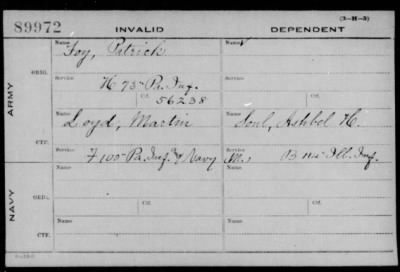 (3-H-5)
89972 INVALID DEPENDENT
Name Name
Foy, Patrick
ORIG.
Service Service
H 75" Pa. Inf.
Ctf. Ctf.
56238
ARMY
Name Name
Loyd, Martin Soul, Ashbel H.
CTF.
Service Service
F 100" Pa. Inf. & Navy M., B 114" Ill. Inf.
Name Name
ORIG.
NAVY
Service Ctf. Service Ctf.
Name Name
CTF.
Service Service